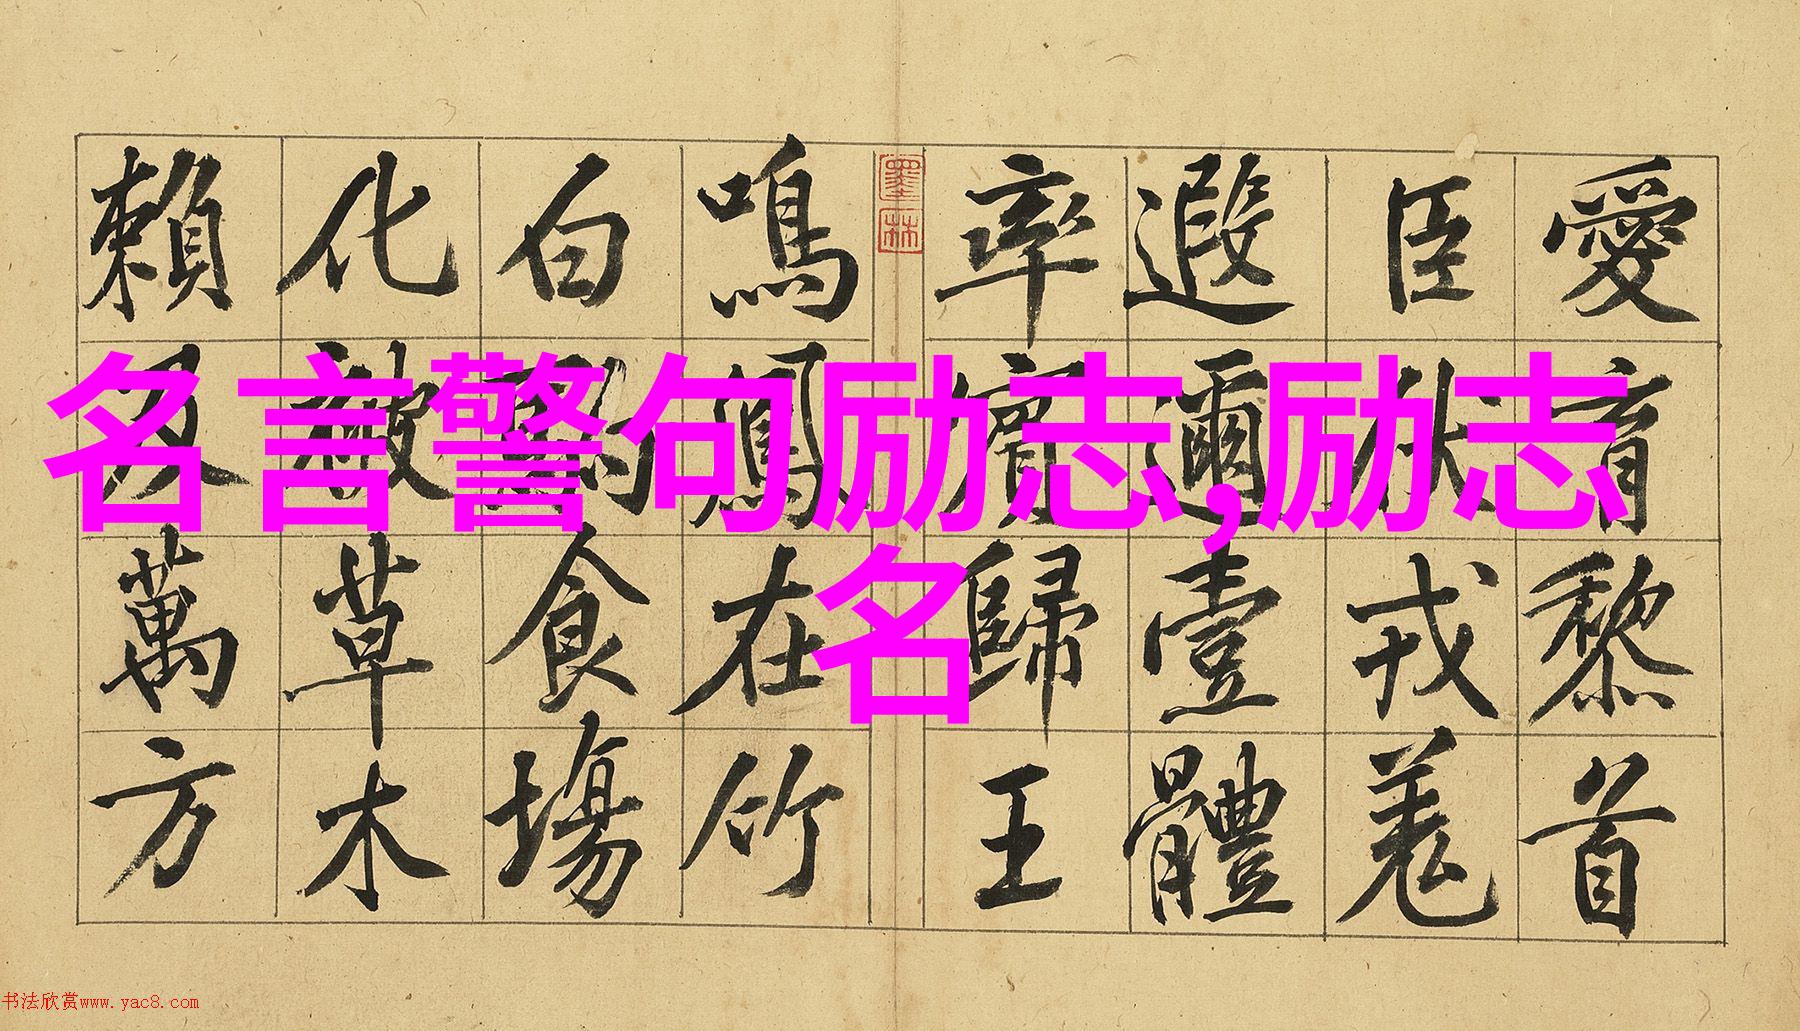 愛育黎首
臣伏戎羌
遐邇壹體
率賓歸王
墨林
鳴鳳在竹
白駒食場
化被草木
賴及萬方
名言警句励志,励志
名
书法欣赏www.yac8.com